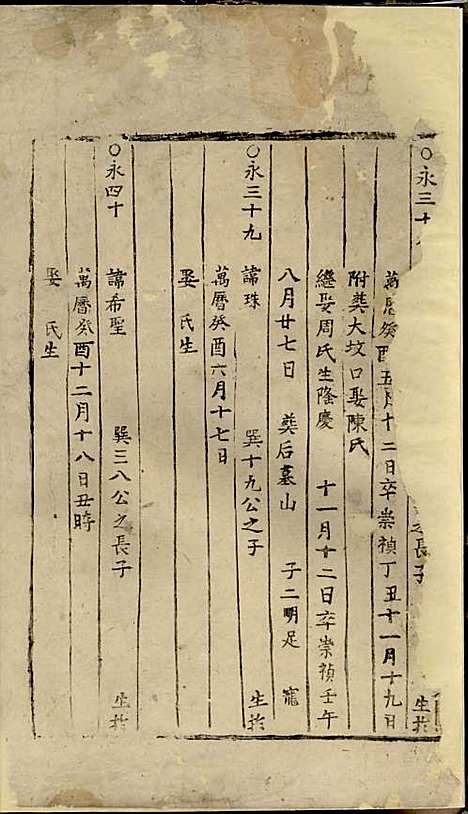 ○永三十 之長子 生於
萬曆癸酉五月十二日卒崇禎丁丑十一月十九日
附葬大坟口娶陳氏
繼娶周氏生隆慶 十一月十二日卒崇禎壬午
八月廿七日 葬后墓山 子二明足 寵
○永三十九 諱珠 巽十九公之子 生於
萬曆癸酉六月十七日
娶 氏生
○永四十 諱希聖 巽三八公之長子 生於
萬曆癸酉十二月十八日丑時
娶 氏生